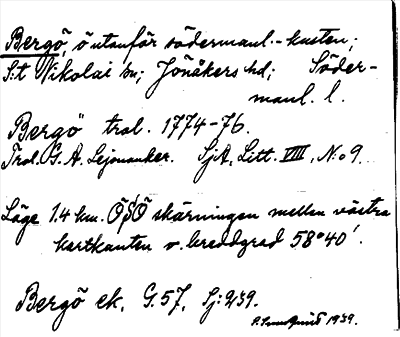 Bergö, ö utanför södermanl.-kusten;
S:t Nikolai sn; Jönåkers hd; Söder-
manl. l.
Bergö trol. 1774-76.
Trol. G. A. Lejonanker. SjA, Litt. VIII, N:o 9.
Läge 1.4 km. ÖSÖ skärningen mellan västra
kartkanten o. breddgrad 58°40'.
Bergö ek. G.57, Sj:239.
1939.